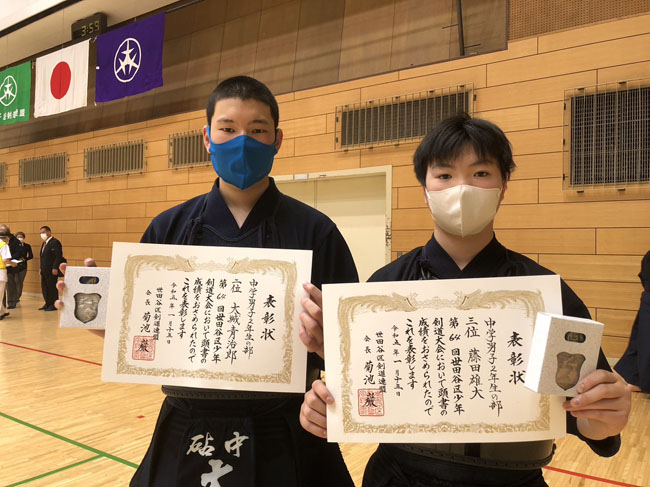 3:59
表彰状
中学男子2年生の部
二位 大城 青治郎
第64回世田谷区少年
剣道大会において頭書の
成績をおさめられたので
これを表彰します
令和五年一月十五日
世田谷区剣道連盟
会長 菊池 巌
表彰状
中学男子2年生の部
三位 藤田 雄大
第64回世田谷区少年
剣道大会において頭書の
成績をおさめられたので
これを表彰します
令和五年一月十五日
世田谷区剣道連盟
会長 菊池 巌
砧中
大